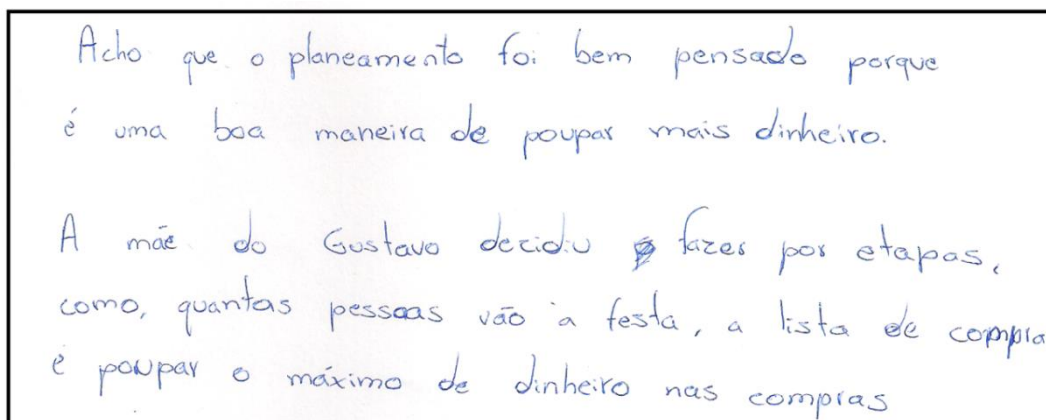 Acho que o planeamento foi bem pensado porque
é uma boa maneira de poupar mais dinheiro.
A mãe do Gustavo decidiu fazer por etapas,
como, quantas pessoas vão à festa, a lista de compra
e poupar o máximo de dinheiro nas compras